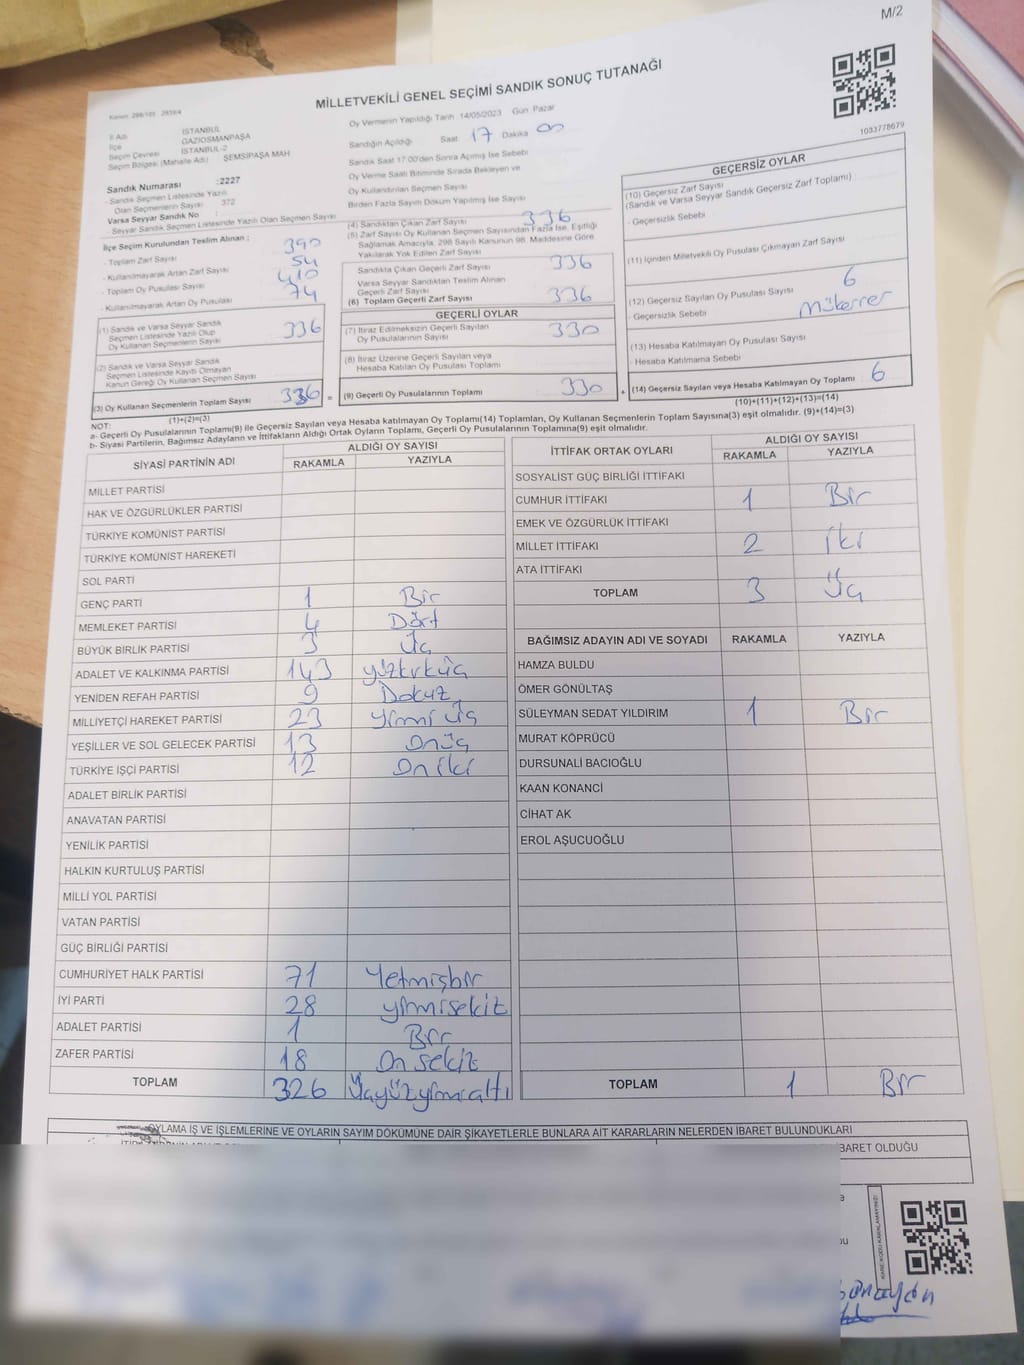 M/2
MİLLETVEKİLİ GENEL SEÇİMİ SANDIK SONUÇ TUTANAĞI
1033778679
İl Adı İSTANBUL
İlçe GAZİOSMANPAŞA
Seçim Çevresi İSTANBUL-2
Seçim Bölgesi (Mahalle Adı) ŞEMSİPAŞA MAH
Sandık Numarası :2227
- Sandık Seçmen Listesinde Yazılı
Olan Seçmenlerin Sayısı 372
Varsa Seyyar Sandık No :
- Seyyar Sandık Seçmen Listesinde Yazılı Olan Seçmen Sayısı
İlçe Seçim Kurulundan Teslim Alınan :
- Toplam Zarf Sayısı 390
- Kullanılmayarak Artan Zarf Sayısı 54
- Toplam Oy Pusulası Sayısı 410
- Kullanılmayarak Artan Oy Pusulası 74
(1) Sandık ve Varsa Seyyar Sandık
Seçmen Listesinde Yazılı Olup
Oy Kullanan Seçmenlerin Sayısı 336
(2) Sandık ve Varsa Seyyar Sandık
Seçmen Listesinde Kayıtlı Olmayan
Kanun Gereği Oy Kullanan Seçmen Sayısı
(3) Oy Kullanan Seçmenlerin Toplam Sayısı 336 =
(1)+(2)=(3)
Oy Vermenin Yapıldığı Tarih 14/05/2023 Gün Pazar
Sandığın Açıldığı Saat 17 Dakika 00
Sandık Saat 17:00'den Sonra Açılmış İse Sebebi
Oy Verme Saati Bitiminde Sırada Bekleyen ve
Oy Kullandırılan Seçmen Sayısı
Birden Fazla Sayım Döküm Yapılmış İse Sayısı
(4) Sandıktan Çıkan Zarf Sayısı 336
(5) Zarf Sayısı Oy Kullanan Seçmen Sayısından Fazla İse, Eşitliği
Sağlamak Amacıyla, 298 Sayılı Kanunun 98. Maddesine Göre
Yakılarak Yok Edilen Zarf Sayısı
Sandıkta Çıkan Geçerli Zarf Sayısı 336
Varsa Seyyar Sandıktan Teslim Alınan
Geçerli Zarf Sayısı
(6) Toplam Geçerli Zarf Sayısı 336
GEÇERLİ OYLAR
(7) İtiraz Edilmeksizin Geçerli Sayılan
Oy Pusulalarının Sayısı 330
(8) İtiraz Üzerine Geçerli Sayılan veya
Hesaba Katılan Oy Pusulası Toplamı
(9) Geçerli Oy Pusulalarının Toplamı 330 +
GEÇERSİZ OYLAR
(10) Geçersiz Zarf Sayısı
(Sandık ve Varsa Seyyar Sandık Geçersiz Zarf Toplamı)
- Geçersizlik Sebebi
(11) İçinden Milletvekili Oy Pusulası Çıkmayan Zarf Sayısı
(12) Geçersiz Sayılan Oy Pusulası Sayısı 6
- Geçersizlik Sebebi Mükerrer
(13) Hesaba Katılmayan Oy Pusulası Sayısı
- Hesaba Katılmama Sebebi
(14) Geçersiz Sayılan veya Hesaba Katılmayan Oy Toplamı 6
(10)+(11)+(12)+(13)=(14)
NOT:
a- Geçerli Oy Pusulalarının Toplamı(9) ile Geçersiz Sayılan veya Hesaba katılmayan Oy Toplamı(14) Toplamları, Oy Kullanan Seçmenlerin Toplam Sayısına(3) eşit olmalıdır. (9)+(14)=(3)
b- Siyasi Partilerin, Bağımsız Adayların ve İttifakların Aldığı Ortak Oyların Toplamı, Geçerli Oy Pusulalarının Toplamına(9) eşit olmalıdır.
SİYASİ PARTİNİN ADI ALDIĞI OY SAYISI
RAKAMLA YAZIYLA
MİLLET PARTİSİ
HAK VE ÖZGÜRLÜKLER PARTİSİ
TÜRKİYE KOMÜNİST PARTİSİ
TÜRKİYE KOMÜNİST HAREKETİ
SOL PARTİ
GENÇ PARTİ 1 Bir
MEMLEKET PARTİSİ 4 Dört
BÜYÜK BİRLİK PARTİSİ 3 Üç
ADALET VE KALKINMA PARTİSİ 143 yüzkırküç
YENİDEN REFAH PARTİSİ 9 Dokuz
MİLLİYETÇİ HAREKET PARTİSİ 23 yirmi üç
YEŞİLLER VE SOL GELECEK PARTİSİ 13 onüç
TÜRKİYE İŞÇİ PARTİSİ 12 on iki
ADALET BİRLİK PARTİSİ
ANAVATAN PARTİSİ
YENİLİK PARTİSİ
HALKIN KURTULUŞ PARTİSİ
MİLLİ YOL PARTİSİ
VATAN PARTİSİ
GÜÇ BİRLİĞİ PARTİSİ
CUMHURİYET HALK PARTİSİ 71 Yetmişbir
İYİ PARTİ 28 yirmisekiz
ADALET PARTİSİ 1 Bir
ZAFER PARTİSİ 18 On sekiz
TOPLAM 326 Üçyüzyirmialtı
İTTİFAK ORTAK OYLARI ALDIĞI OY SAYISI
RAKAMLA YAZIYLA
SOSYALİST GÜÇ BİRLİĞİ İTTİFAKI
CUMHUR İTTİFAKI 1 Bir
EMEK VE ÖZGÜRLÜK İTTİFAKI
MİLLET İTTİFAKI 2 iki
ATA İTTİFAKI
TOPLAM 3 Üç
BAĞIMSIZ ADAYIN ADI VE SOYADI RAKAMLA YAZIYLA
HAMZA BULDU
ÖMER GÖNÜLTAŞ
SÜLEYMAN SEDAT YILDIRIM 1 Bir
MURAT KÖPRÜCÜ
DURSUNALİ BACIOĞLU
KAAN KONANCİ
CİHAT AK
EROL AŞUCUOĞLU
TOPLAM 1 Bir
OYLAMA İŞ VE İŞLEMLERİNE VE OYLARIN SAYIM DÖKÜMÜNE DAİR ŞİKAYETLERLE BUNLARA AİT KARARLARIN NELERDEN İBARET BULUNDUKLARI
BARET OLDUĞU